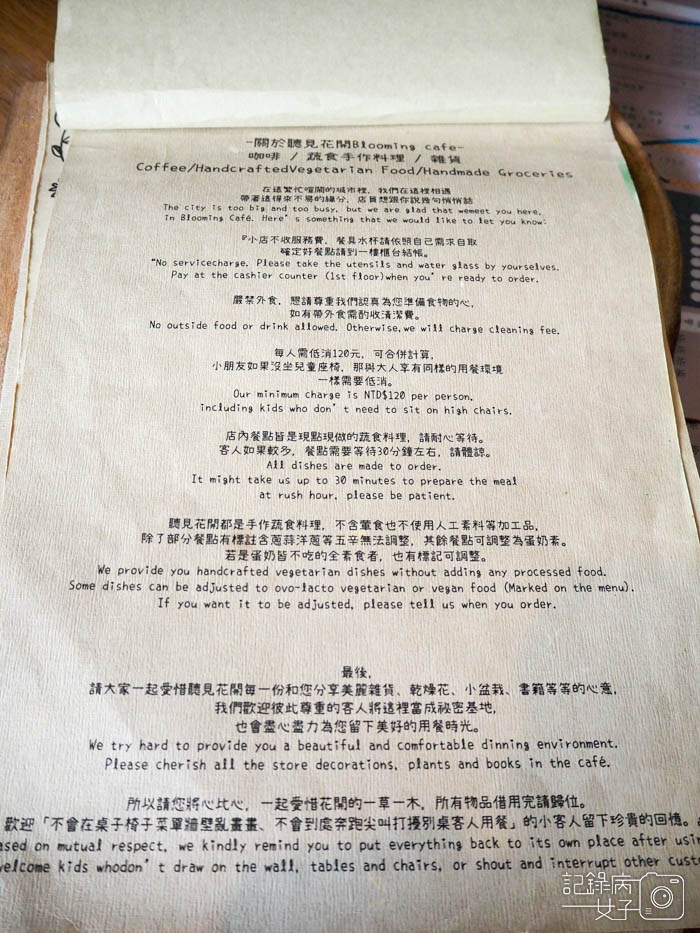 -關於聽見花開Blooming cafe-
咖啡 / 蔬食手作料理 / 雜貨
Coffee/HandcraftedVegetarian Food/Handmade Groceries
在這繁忙喧鬧的城市裡, 我們在這裡相遇
帶著這得來不易的緣分, 店員想跟你說幾句悄悄話
The city is too big and too busy, but we are glad that wemeet you here,
in Blooming Café. Here's something that we would like to let you know:
『小店不收服務費, 餐具水杯請依照自己需求自取
確定好餐點請到一樓櫃台結帳。
"No servicecharge. Please take the utensils and water glass by yourselves.
Pay at the cashier counter (1st floor)when you're ready to order.
嚴禁外食, 懇請尊重我們認真為您準備食物的心,
如有帶外食需酌收清潔費。
No outside food or drink allowed. Otherwise,we will charge cleaning fee.
每人需低消120元, 可合併計算,
小朋友如果沒坐兒童座椅, 那與大人享有同樣的用餐環境
一樣需要低消。
Our minimum charge is NTD$120 per person,
including kids who don't need to sit on high chairs.
店內餐點皆是現點現做的蔬食料理, 請耐心等待。
客人如果較多, 餐點需要等待30分鐘左右, 請體諒。
All dishes are made to order.
It might take us up to 30 minutes to prepare the meal
at rush hour, please be patient.
聽見花開都是手作蔬食料理, 不含葷食也不使用人工素料等加工品,
除了部分餐點有標註含蔥蒜洋蔥等五辛無法調整, 其餘餐點可調整為蛋奶素。
若是蛋奶皆不吃的全素食者, 也有標記可調整。
We provide you handcrafted vegetarian dishes without adding any processed food.
Some dishes can be adjusted to ovo-lacto vegetarian or vegan food (Marked on the menu).
If you want it to be adjusted, please tell us when you order.
最後,
請大家一起愛惜聽見花開每一份和您分享美麗雜貨、乾燥花、小盆栽、書籍等等的心意,
我們歡迎彼此尊重的客人將這裡當成祕密基地,
也會盡心盡力為您留下美好的用餐時光。
We try hard to provide you a beautiful and comfortable dinning environment.
Please cherish all the store decorations, plants and books in the café.
所以請您將心比心, 一起愛惜花開的一草一木, 所有物品借用完請歸位。
歡迎「不會在桌子椅子菜單牆壁亂畫畫、不會到處奔跑尖叫打擾別桌客人用餐」的小客人留下珍貴的回憶。
ased on mutual respect, we kindly remind you to put everything back to its own place after usin
welcome kids whodon't draw on the wall, tables and chairs, or shout and interrupt other custo
記錄病
女子